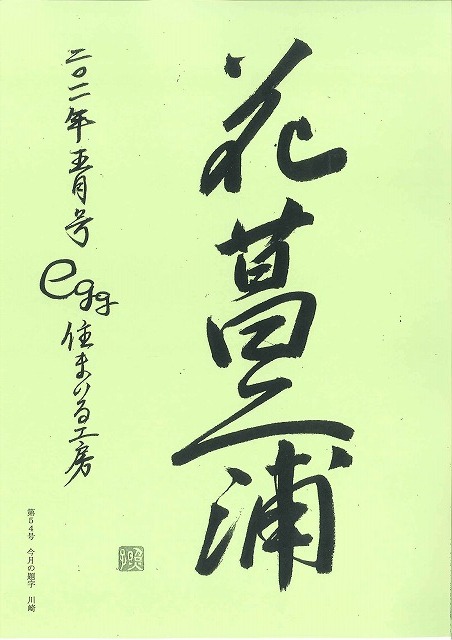 花菖蒲
二〇一一年五月号 egg 住まいる工房
第５４号 今月の題字 川崎